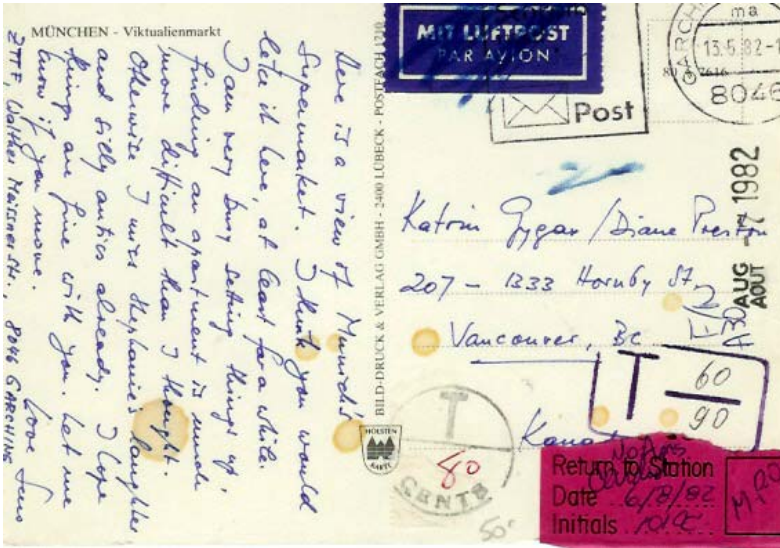 MÜNCHEN - Viktualienmarkt
Here is a view of Munich's
Supermarket. I think you would
love it here, at least for a while.
I am very busy setting things up,
finding an apartment is much
more difficult than I thought.
Otherwise I miss Stephanie's laughter,
and silly antics already. I hope
things are fine with you. Let me
know if you move.
Love Jens
ZTTF, Walther Meissnerstr., 8046 GARCHING
BILD-DRUCK & VERLAG GMBH - 2400 LÜBECK - POSTFACH 1210
HOLSTEN
KARTE
MIT LUFTPOST
PAR AVION
Post
GARCH
ma
13.5.82-1
8046
80
7616
Katrin Gygax / Diane Preston
207 - 1333 Hornby St,
Vancouver, BC
Kana
AUG -7 1982
AOUT
T 60
90
T
80
CENTS
50-
Return to Station
Date 6/8/82
Initials